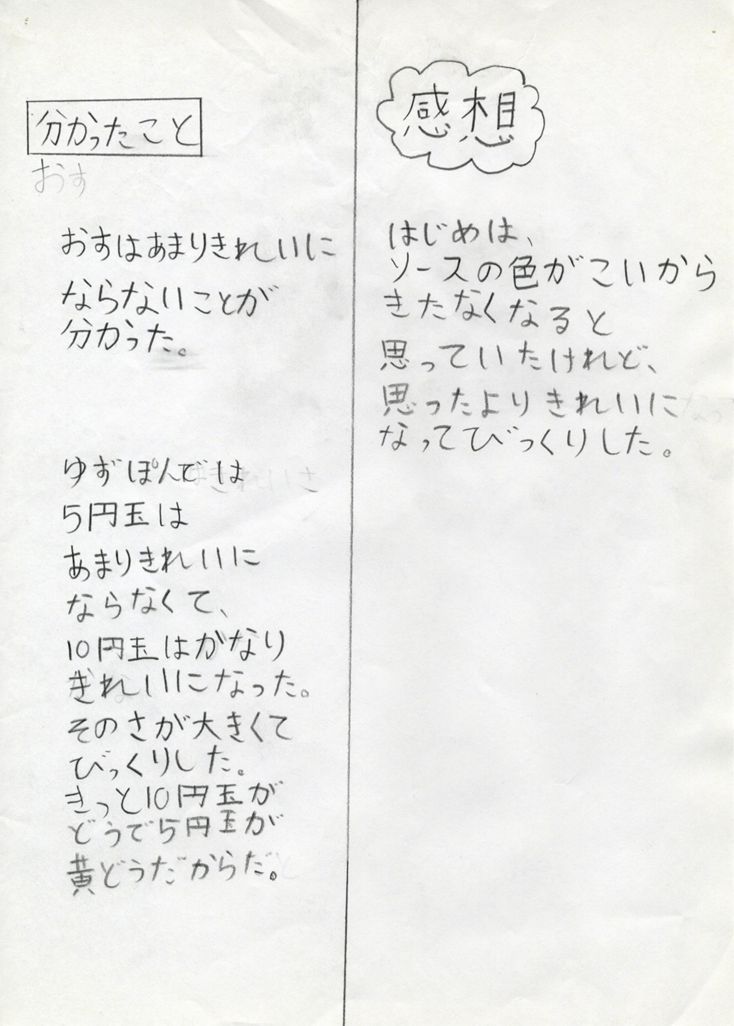 分かったこと
おす
おすはあまりきれいに
ならないことが
分かった。
ゆずぽんでは
5円玉は
あまりきれいに
ならなくて、
10円玉はかなり
きれいになった。
そのさが大きくて
びっくりした。
きっと10円玉が
どうで5円玉が
黄どうだからだ。
感想
はじめは、
ソースの色がこいから
きたなくなると
思っていたけれど、
思ったよりきれいに
なってびっくりした。